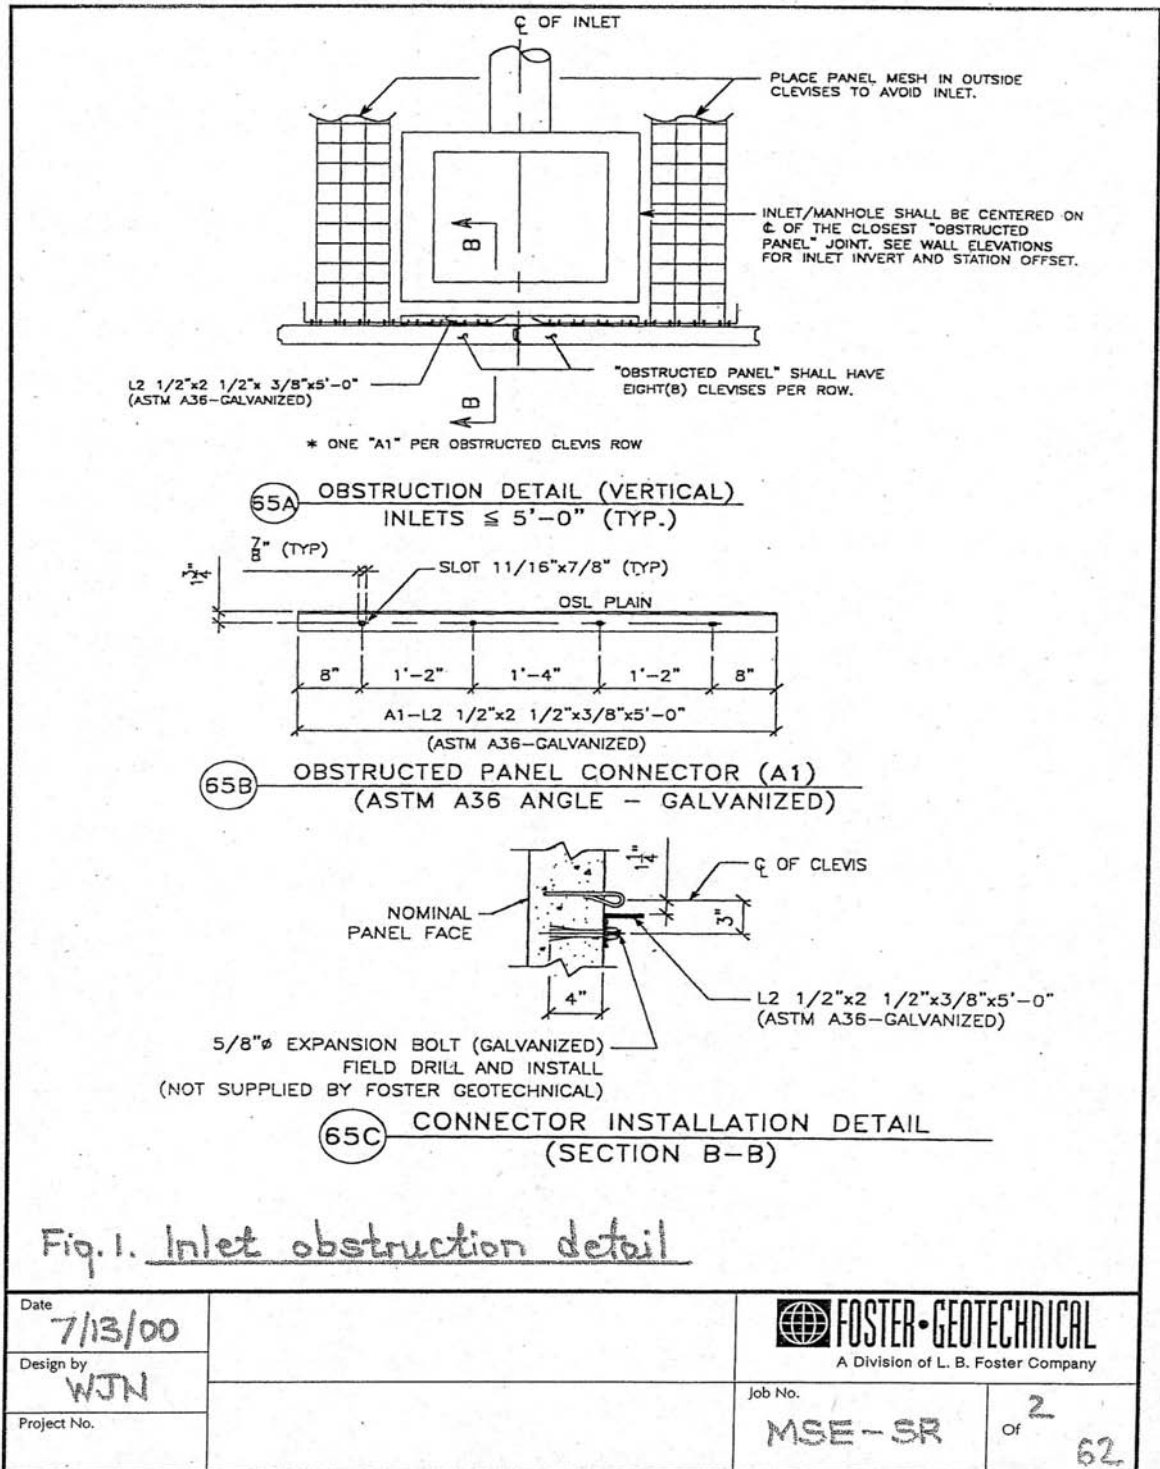 ℄ OF INLET
PLACE PANEL MESH IN OUTSIDE
CLEVISES TO AVOID INLET.
INLET/MANHOLE SHALL BE CENTERED ON
℄ OF THE CLOSEST "OBSTRUCTED
PANEL" JOINT. SEE WALL ELEVATIONS
FOR INLET INVERT AND STATION OFFSET.
B
L2 1/2"x2 1/2"x 3/8"x5'-0"
(ASTM A36-GALVANIZED)
"OBSTRUCTED PANEL" SHALL HAVE
EIGHT(8) CLEVISES PER ROW.
B
* ONE "A1" PER OBSTRUCTED CLEVIS ROW
65A OBSTRUCTION DETAIL (VERTICAL)
INLETS ≦ 5'-0" (TYP.)
7/8" (TYP)
1 3/4"
SLOT 11/16"x7/8" (TYP)
OSL PLAIN
8" 1'-2" 1'-4" 1'-2" 8"
A1-L2 1/2"x2 1/2"x3/8"x5'-0"
(ASTM A36-GALVANIZED)
65B OBSTRUCTED PANEL CONNECTOR (A1)
(ASTM A36 ANGLE - GALVANIZED)
1 1/4"
℄ OF CLEVIS
NOMINAL
PANEL FACE
3"
4"
L2 1/2"x2 1/2"x3/8"x5'-0"
(ASTM A36-GALVANIZED)
5/8"ø EXPANSION BOLT (GALVANIZED)
FIELD DRILL AND INSTALL
(NOT SUPPLIED BY FOSTER GEOTECHNICAL)
65C CONNECTOR INSTALLATION DETAIL
(SECTION B-B)
Fig. 1. Inlet obstruction detail
Date
7/13/00
Design by
WJN
Project No.
FOSTER•GEOTECHNICAL
A Division of L. B. Foster Company
Job No.
MSE-SR
2
Of
62